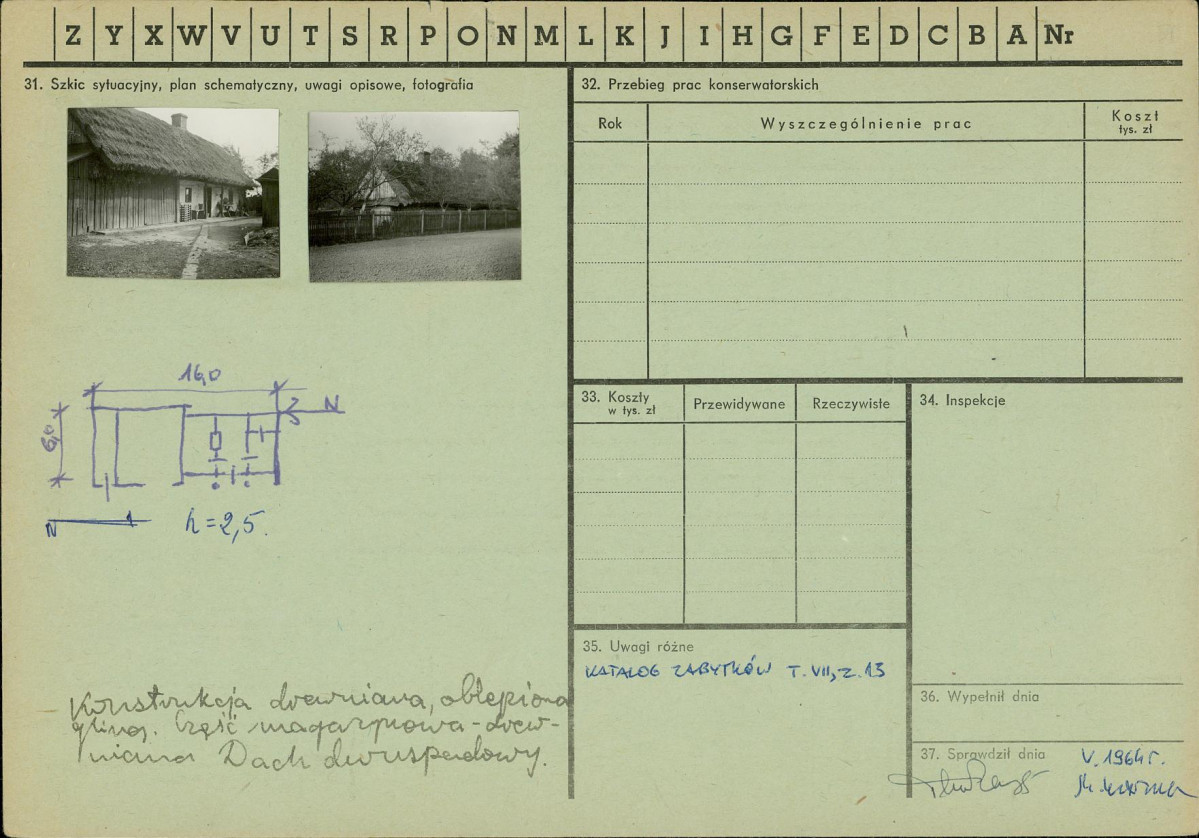 Z Y X W V U T S R P O N M L K J I H G F E D C B A Nr
31. Szkic sytuacyjny, plan schematyczny, uwagi opisowe, fotografia
16,0
6,0
N
N
h=2,5.
Konstrukcja drewniana, oblepiona
gliną. Część magazynowa - drew-
niana Dach dwuspadowy.
32. Przebieg prac konserwatorskich
Rok
Wyszczególnienie prac
Koszt
tys. zł
33. Koszty
w tys. zł
Przewidywane
Rzeczywiste
34. Inspekcje
35. Uwagi różne
KATALOG ZABYTKÓW T. VII, z. 13
36. Wypełnił dnia
37. Sprawdził dnia
V. 1964 r.